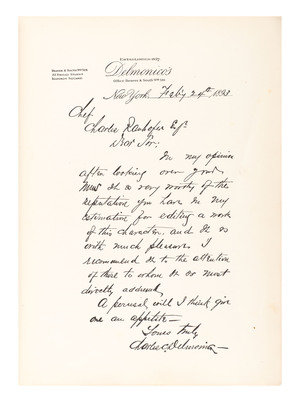 ESTABLISHED 1827.
Delmonico's
BEAVER & SOUTH Wm STS.
22 BROAD STREET
MADISON SQUARE
Office Beaver & South Wm Sts.
New York Feby 24th 1893
Chef
Charles Ranhofer Esq.
Dear Sir;
In my opinion
after looking over your
it is very worthy of the
reputation you have in my
estimation for editing a work
of this character. and it is
with much pleasure I
recommend it to the attention
of those to whom it is most
directly addressed,
A perusal will I think give
one an appetite—
Yours truly
Charles C. Delmonico—